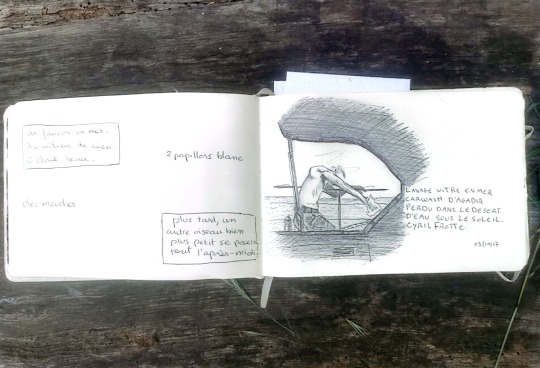 un faucon en mer.
au milieu de rien
c'était beau.
2 papillons blanc
des mouches
plus tard, un
autre oiseau bien
plus petit se posera
tout l'après-midi.
LAVAGE VITRE EN MER
CARWASH D'AGADIR
PERDU DANS LE DESERT
D'EAU SOUS LE SOLEIL.
CYRIL FROTTE.